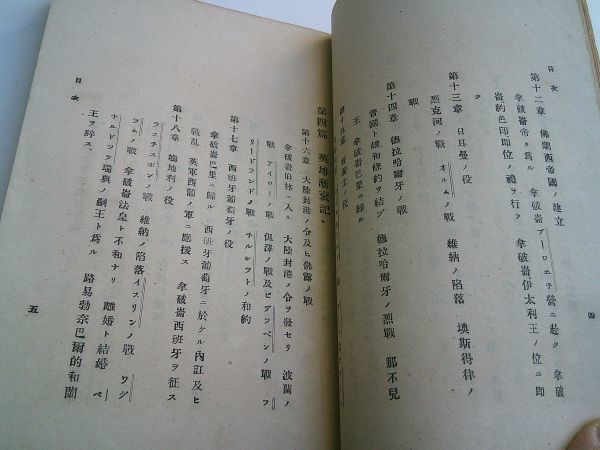 目次
四
第十二章 佛蘭西帝國ノ建立
拿破崙帝ト爲ル 拿破崙ブーロエテ營ニ起ク 拿破
崙約色印即位ノ禮ヲ行フ 拿破崙伊太利王ノ位ニ即
ク
第十三章 日耳曼ノ役
烈克河ノ戰 オルムノ戰 維納ノ陷落 墺斯得律ノ
戰
第十四章 德拉哈爾牙ノ戰
普國ト媾和條約ヲ結ブ 德拉哈爾牙ノ烈戰 那不兒
王 拿破崙巴里ニ歸ル
第十五章
第四篇 英雄漸衰記
第十六章 大陸封港ノ令及ヒ佛露ノ戰
拿破崙伯林ニ入ル 大陸封港ノ令ヲ發セリ 波蘭ノ
戰 アイローノ戰 但澤ノ戰及ヒアッペンノ戰 フ
リードランドノ戰 チルシツトノ和約
第十七章 西班牙葡萄牙ノ役
拿破崙巴里ニ歸ル 西班牙葡萄牙ニ於ケル內訌及ヒ
戰亂 英軍西班牙ノ軍ニ應援ス 拿破崙西班牙ヲ征ス
第十八章 墺地利ノ役
ラスチスボンノ戰 維納ノ陷落イスリンノ戰 ワグ
ラムノ戰 拿破崙法皇ト不和ナリ 離婚ト結婚 ベ
ナルドツテ瑞典ノ嗣王ト爲ル 路易勃奈巴爾的和蘭
王ヲ辭ス
目次
五